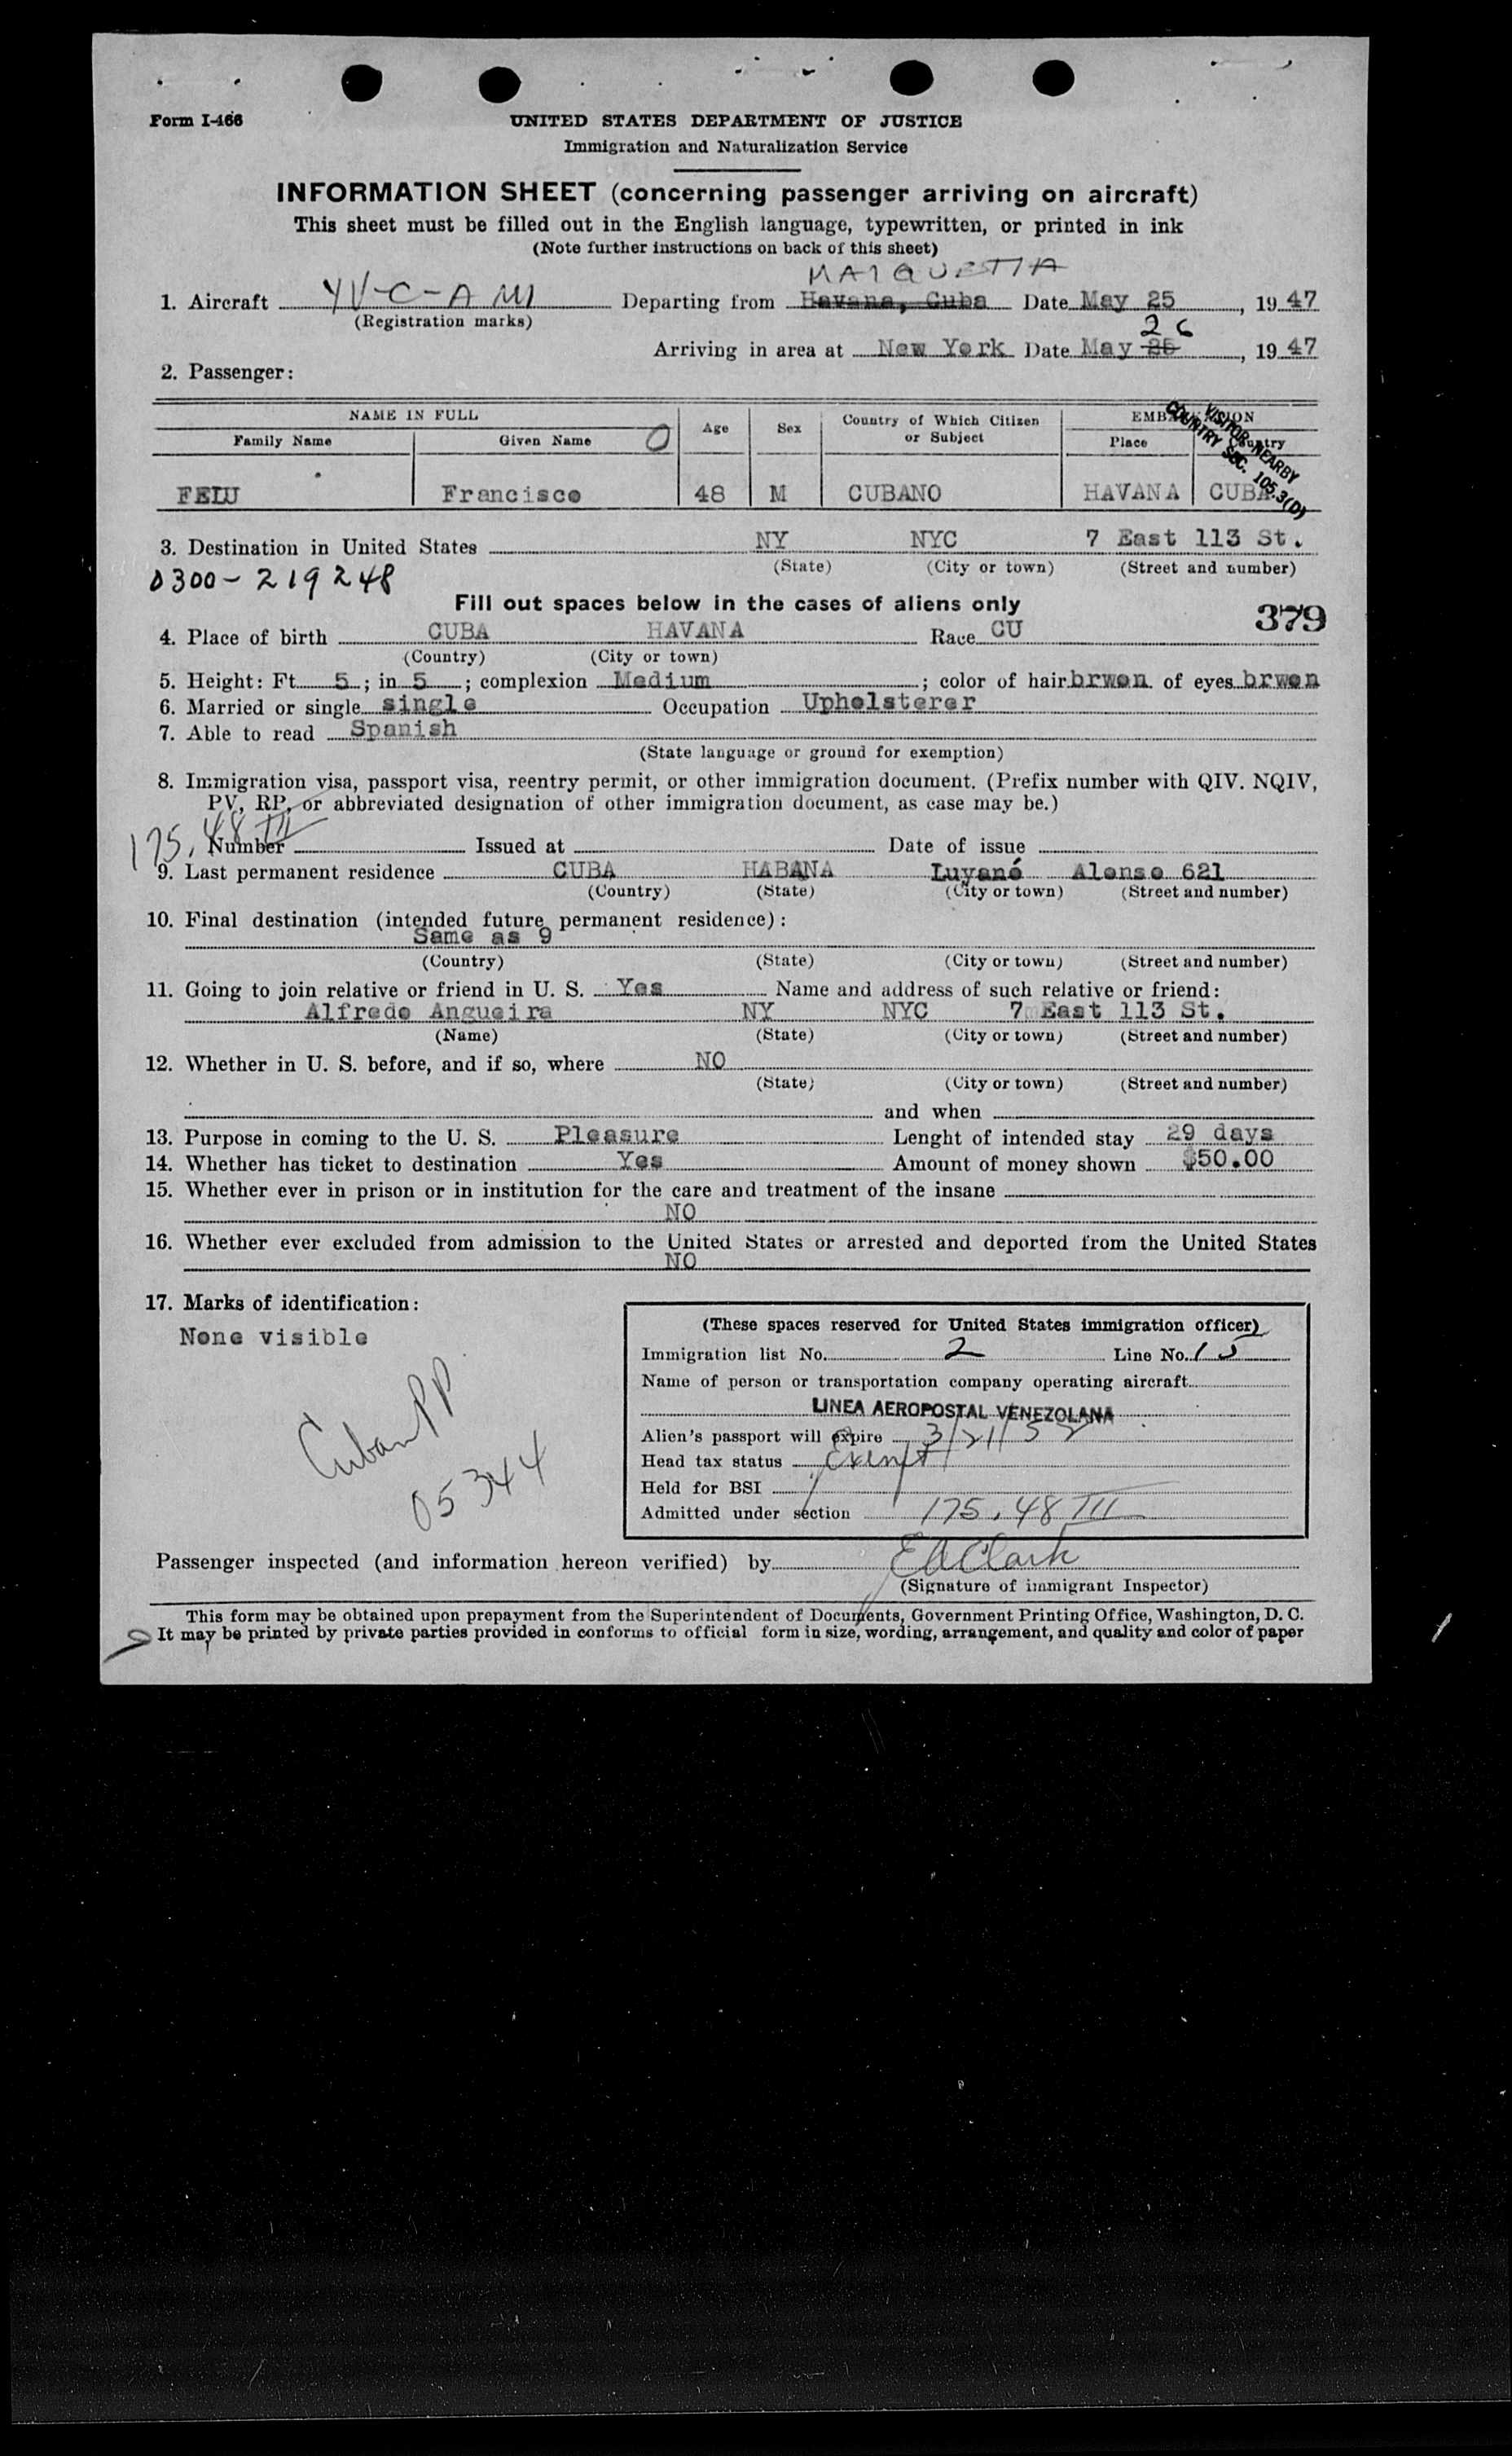 Form I-466
UNITED STATES DEPARTMENT OF JUSTICE
Immigration and Naturalization Service
INFORMATION SHEET (concerning passenger arriving on aircraft)
This sheet must be filled out in the English language, typewritten, or printed in ink
(Note further instructions on back of this sheet)
MAIQUETIA
1. Aircraft YV-C-AMI Departing from Havana, Cuba Date May 25, 1947
(Registration marks)
26
Arriving in area at New York Date May 25, 1947
2. Passenger:
NAME IN FULL Age Sex Country of Which Citizen or Subject EMBARKATION
Family Name Given Name Place Country
VISITOR NEARBY
COUNTRY SEC. 105.3(D)
FELU Francisco 48 M CUBANO HAVANA CUBA
3. Destination in United States NY NYC 7 East 113 St.
(State) (City or town) (Street and number)
0300-219248
Fill out spaces below in the cases of aliens only
379
4. Place of birth CUBA HAVANA Race CU
(Country) (City or town)
5. Height: Ft. 5; in 5; complexion Medium; color of hair brwon of eyes brwon
6. Married or single single Occupation Upholsterer
7. Able to read Spanish
(State language or ground for exemption)
8. Immigration visa, passport visa, reentry permit, or other immigration document. (Prefix number with QIV. NQIV,
PV, RP, or abbreviated designation of other immigration document, as case may be.)
175.48 III
Number Issued at Date of issue
9. Last permanent residence CUBA HABANA Luyanó Alonso 621
(Country) (State) (City or town) (Street and number)
10. Final destination (intended future permanent residence):
Same as 9
(Country) (State) (City or town) (Street and number)
11. Going to join relative or friend in U. S. Yes Name and address of such relative or friend:
Alfredo Angueira NY NYC 7 East 113 St.
(Name) (State) (City or town) (Street and number)
12. Whether in U. S. before, and if so, where NO
(State) (City or town) (Street and number)
and when
13. Purpose in coming to the U. S. Pleasure Lenght of intended stay 29 days
14. Whether has ticket to destination Yes Amount of money shown $50.00
15. Whether ever in prison or in institution for the care and treatment of the insane
NO
16. Whether ever excluded from admission to the United States or arrested and deported from the United States
NO
17. Marks of identification:
None visible
Cuban PP
05344
(These spaces reserved for United States immigration officer)
Immigration list No. 2 Line No. 15
Name of person or transportation company operating aircraft
LINEA AEROPOSTAL VENEZOLANA
Alien's passport will expire 3/21/52
Head tax status Exempt
Held for BSI
Admitted under section 175.48 III
Passenger inspected (and information hereon verified) by EAClark
(Signature of immigrant Inspector)
This form may be obtained upon prepayment from the Superintendent of Documents, Government Printing Office, Washington, D. C.
It may be printed by private parties provided in conforms to official form in size, wording, arrangement, and quality and color of paper